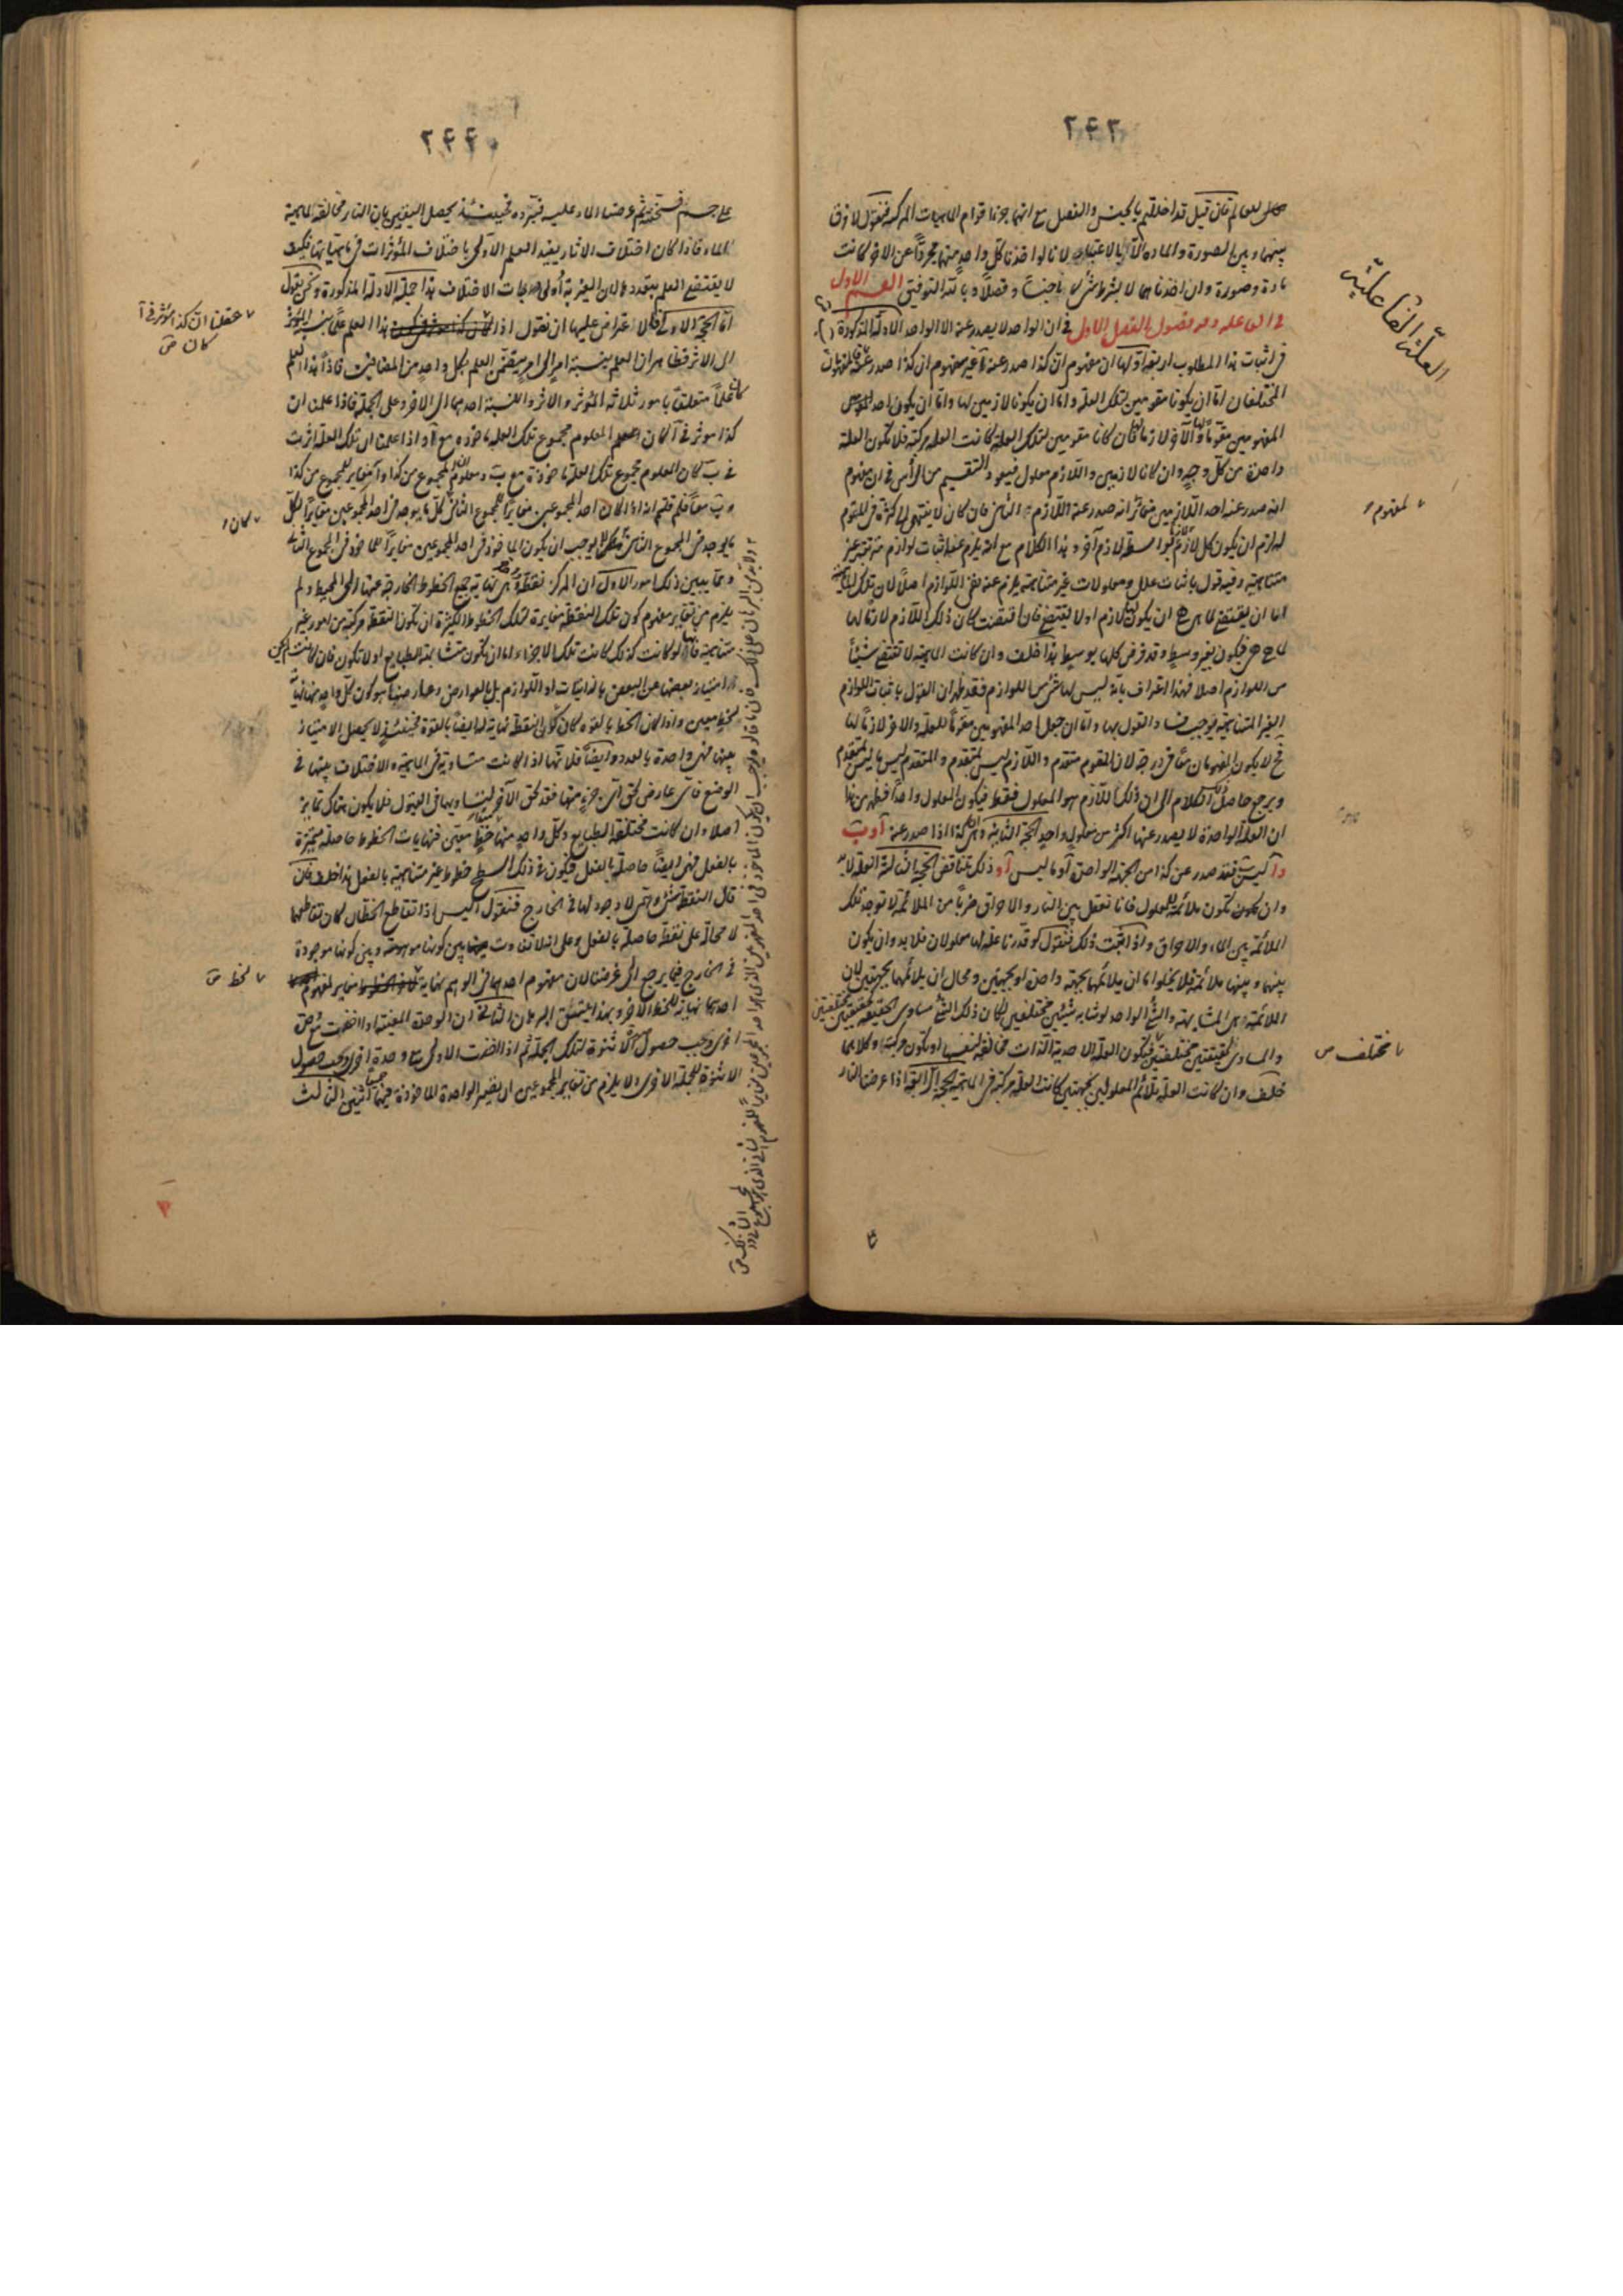 ٢٤٣
فان قيل قد اخللتم بالجنس والفصل مع انهما جزءا قوام الماهيات المركبة فنقول لا فرق
بينهما وبين الصورة والمادة الا بالاعتبار لانا لو اخذنا كل واحد منهما مجردا عن الاخر كانت
مادة وصورة وان اخذناهما لا بشرط شئ كانا جنسا وفصلا وبالله التوفيق القسم الاول
في العلة الفاعلية وفيه فصول الفصل الاول في ان الواحد لا يصدر عنه الا الواحد الادلة المذكورة
في اثبات هذا المطلوب اربعة اولها ان مفهوم ان كذا صدر عنه آ غير مفهوم ان كذا صدر عنه ب فالمفهومان
المختلفان اما ان يكونا مقومين لتلك العلة واما ان يكونا لازمين لها واما ان يكون احد
المفهومين مقوما لها والآخر لازما لها فان كانا مقومين لتلك العلة كانت العلة مركبة فلا تكون العلة
واحدة من كل وجه وان كانا لازمين واللازم معلول فيعود التقسيم من الرأس في ان مفهوم
انه صدر عنه احد اللازمين مغائر انه صدر عنه اللازم الثاني فان كان لا ينتهي الى كثرة في المقوم
لزم ان يكون كل لازم بواسطة لازم آخر وهذا الكلام مع انه يلزم عنه اثبات لوازم مترتبة غير
متناهية وفيه قول باثبات علل ومعلولات غير متناهية يلزم عنه نفي اللوازم اصلا لان تلك الماهية
اما ان يقتضي لما هي هي ان يكون لها لازم او لا يقتضي فان اقتضت كان ذلك اللازم لازما لها
لما هي هي فيكون بغير وسيط وقد فرض كلها بوسيط هذا خلف وان كانت الماهية لا تقتضي شيئا
من اللوازم اصلا فهذا اعتراف بانه ليس لها شئ من اللوازم فقد ظهر ان القول باثبات اللوازم
الغير المتناهية يوجب فساد القول بها واما ان جعل احد المفهومين مقوما للعلة والاخر لازما لها
فح لا يكون المفهومان معا في درجة لان المقوم متقدم واللازم ليس بمتقدم والمتقدم ليس ما ليس بمتقدم
ويرجع حاصل الكلام الى ان ذلك اللازم هو المعلول فقط فيكون المعلول واحدا فظهر من هذا
ان العلة الواحدة لا يصدر عنها اكثر من معلول واحد الحجة الثانية وهي انه اذا صدر عنه آ و ب
و آ ليس ب فقد صدر عن كذا من الجهة الواحدة آ وما ليس آ وذلك تناقض الحجة الثالثة العلة لا بد
وان تكون ملائمة للمعلول فانا نعقل بين النار والاحراق ضربا من الملائمة لا توجد تلك
الملائمة بين الماء والاحراق واذا ثبت ذلك فنقول لو قدرنا علة لها معلولان فلا بد وان يكون
بينها وبينهما ملائمة فلا يخلو اما ان يلائمهما بجهة واحدة او بجهتين ومحال ان يلائمهما بجهتين لان
الملائمة هي المشابهة والشئ الواحد لو شابه شيئين مختلفين لكان ذلك الشئ مساوي الحقيقة لحقيقتين مختلفتين
والمساوي لحقيقتين مختلفتين فيكون العلة الاحدية الذات مخالفة لنفسها او يكون مركبة وكلاهما
خلف وان كانت العلة تلائم المعلولين بجهتين كانت العلة مركبة في الماهية الحجة الرابعة اذا عرضنا النار
العلة الفاعلية
لمفهوم
مختلف
٢٤٤
على جسم فسخنته ثم عرضنا الماء عليه فبرده فحينئذ يحصل اليقين بان النار مخالفة لماهية
الماء فاذا كان اختلاف الاثار يفيد العلم الاولي باختلاف المؤثرات في ماهياتها فكيف
اما الحجة الاولى فالاعتراض عليها ان نقول اذا عقلنا ان كذا مؤثر في آ كان هذا العلم علما بنسبة المؤثر
الى الاثر فظاهر ان العلم بنسبة امر الى امر يتضمن العلم بكل واحد من المضافين فاذا هذا العلم
علما متعلقا بامور ثلاثة المؤثر والاثر والنسبة احدهما الى الاخر وعلى الجملة فاذا علمنا ان
كذا مؤثر في آ كان المعلوم مجموع تلك العلة ماخوذة مع آ واذا علمنا ان تلك العلة اثرت
في ب كان المعلوم مجموع تلك العلة ماخوذة مع ب ومعلوم ان المجموع من كذا وآ مغاير للمجموع من كذا
وب معا فلم قلتم انه اذا كان احد المجموعين مغايرا للمجموع الثاني كان كل ما يوجد في احد المجموعين مغايرا لكل
ما يوجد في المجموع الثاني
ومما يبين ذلك امور الاول ان المركز نقطة هي نهاية جميع الخطوط الخارجة عنها الى المحيط ولم
يلزم من تغاير مفهوم كون تلك النقطة نهاية لتلك الخطوط الكثيرة ان تكون النقطة مركبة من امور غير
متناهية فانها لو كانت كذلك كانت تلك الاجزاء اما ان تكون متشابهة الطبايع او لا تكون فان كانت
امتياز بعضها عن البعض بالذاتيات او اللوازم بل بالعوارض وعارضها هو كون كل واحد منها نهاية
لخط معين واذا كان الخط بالقوة كان كون النقطة نهاية لها ايضا بالقوة فحينئذ لا يحصل الامتياز
بينها فهي واحدة بالعدد وايضا فلانها اذا كانت متساوية في الماهية والاختلاف بينها في
الوضع فاي عارض لحق اي جزء منها فقد لحق الآخر
اصلا وان كانت مختلفة الطبايع وكل واحد منها خط معين فنهايات الخطوط حاصلة متميزة
بالفعل فهي ايضا حاصلة بالفعل فيكون في ذلك السطح خطوط غير متناهية بالفعل هذا خلف فان
قال النقطة شئ وهمي لا وجود لها في الخارج فنقول اليس اذا تقاطع الخطان كان تقاطعهما
لا محالة على نقطة حاصلة بالفعل وعلى انه لا تفاوت بين كونها موهومة وبين كونها موجودة
في الخارج فيما يرجع الى غرضنا لان مفهوم احدهما في الوهم نهاية
احدهما نهاية للخط الاخر وبهذا يتمشى البرهان الثاني ان الوحدة المعينة اذا اضيفت
اخرى وجب حصول الاثنوة لتلك الجملة ثم اذا اخذت الاولى مع وحدة اخرى وجب حصول
الاثنوة للجملة الاخرى ولا يلزم من تغاير المجموعين ان يصير الواحدة الماخوذة فيهما اثنين الثالث
عقلنا ان كذا مؤثر في آ
كان
كان
لخط